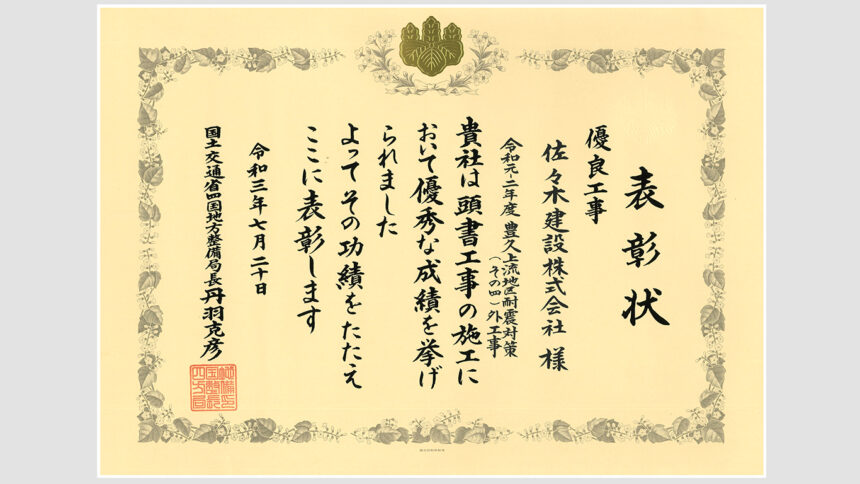 表彰状
優良工事
佐々木建設株式会社 様
令和元-二年度 豊久上流地区耐震対策
(その四)外工事
貴社は頭書工事の施工に
おいて優秀な成績を挙げ
られました
よってその功績をたたえ
ここに表彰します
令和三年七月二十日
国土交通省四国地方整備局長 丹羽克彦